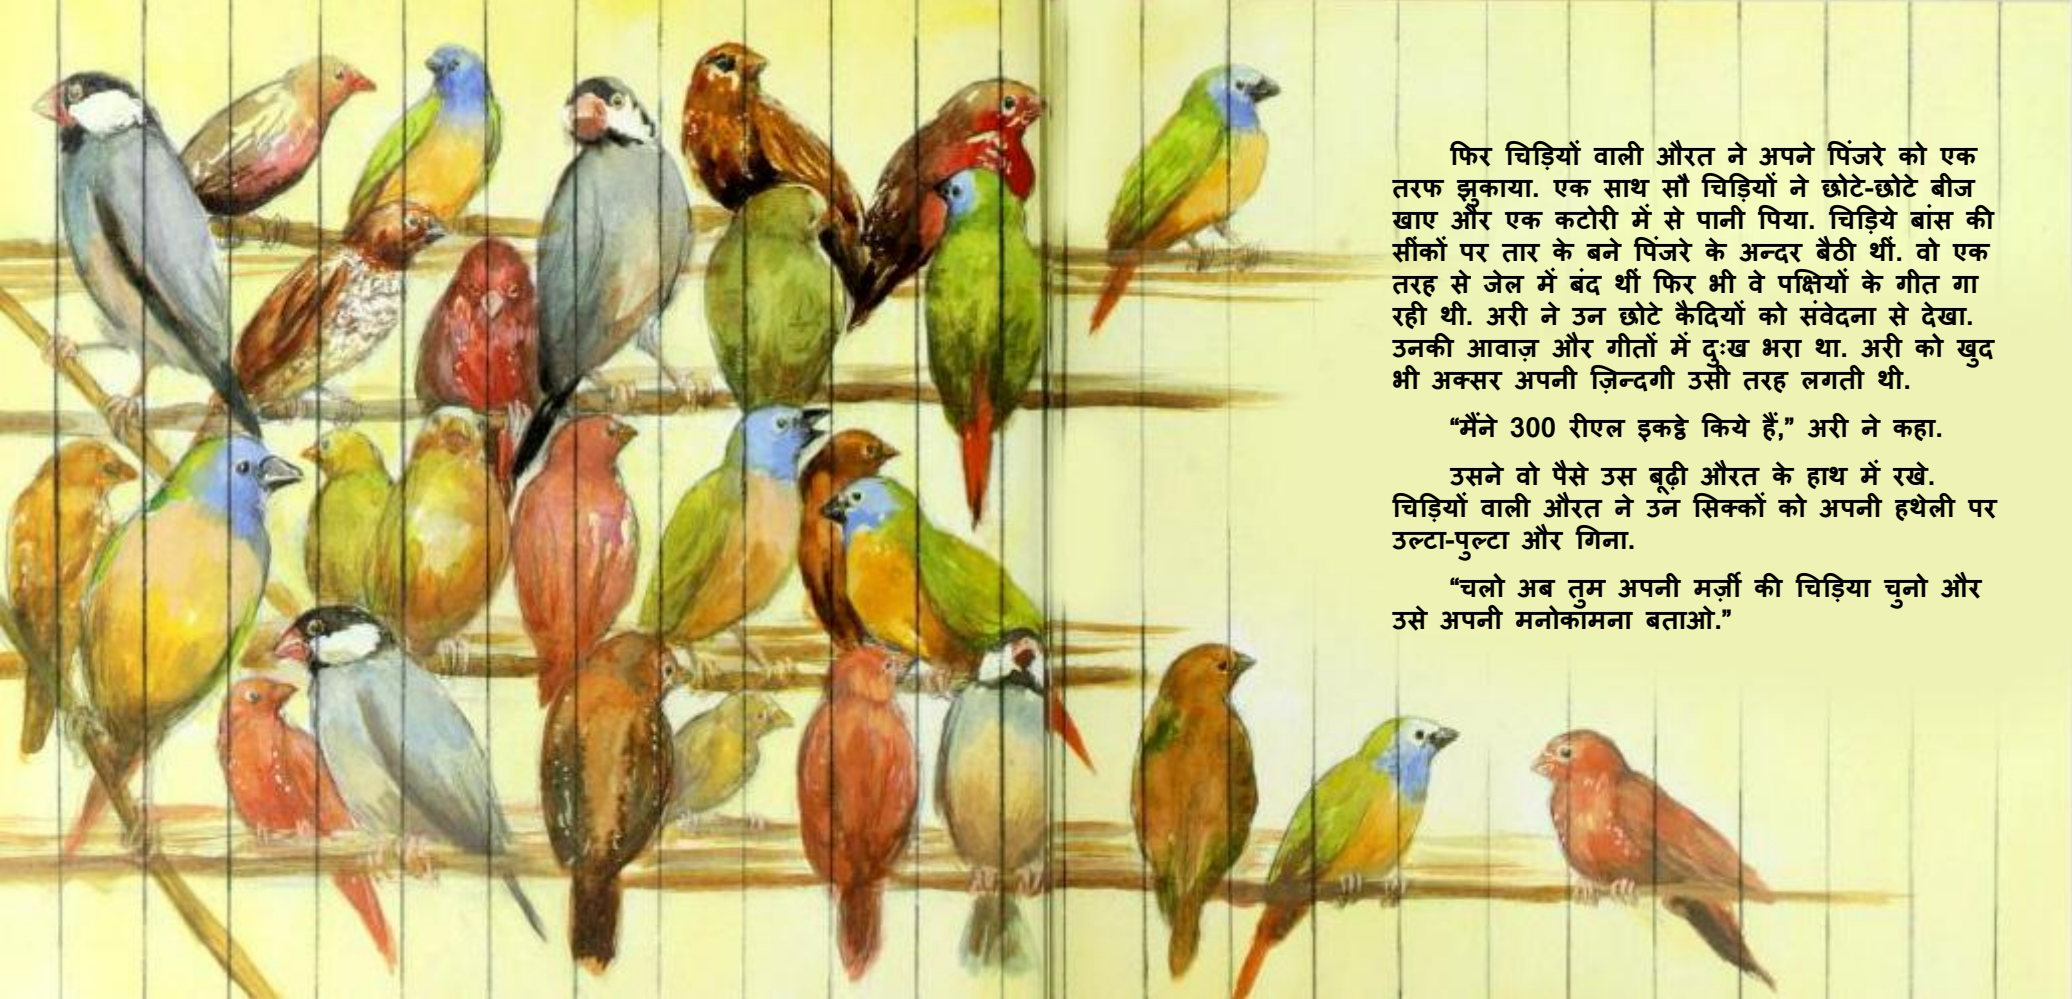 फिर चिड़ियों वाली औरत ने अपने पिंजरे को एक
तरफ झुकाया. एक साथ सौ चिड़ियों ने छोटे-छोटे बीज
खाए और एक कटोरी में से पानी पिया. चिड़िये बांस की
सींकों पर तार के बने पिंजरे के अन्दर बैठी थीं. वो एक
तरह से जेल में बंद थीं फिर भी वे पक्षियों के गीत गा
रही थी. अरी ने उन छोटे कैदियों को संवेदना से देखा.
उनकी आवाज़ और गीतों में दुःख भरा था. अरी को खुद
भी अक्सर अपनी ज़िन्दगी उसी तरह लगती थी.
“मैंने 300 रीएल इकट्ठे किये हैं,” अरी ने कहा.
उसने वो पैसे उस बूढ़ी औरत के हाथ में रखे.
चिड़ियों वाली औरत ने उन सिक्कों को अपनी हथेली पर
उल्टा-पुल्टा और गिना.
“चलो अब तुम अपनी मर्ज़ी की चिड़िया चुनो और
उसे अपनी मनोकामना बताओ.”